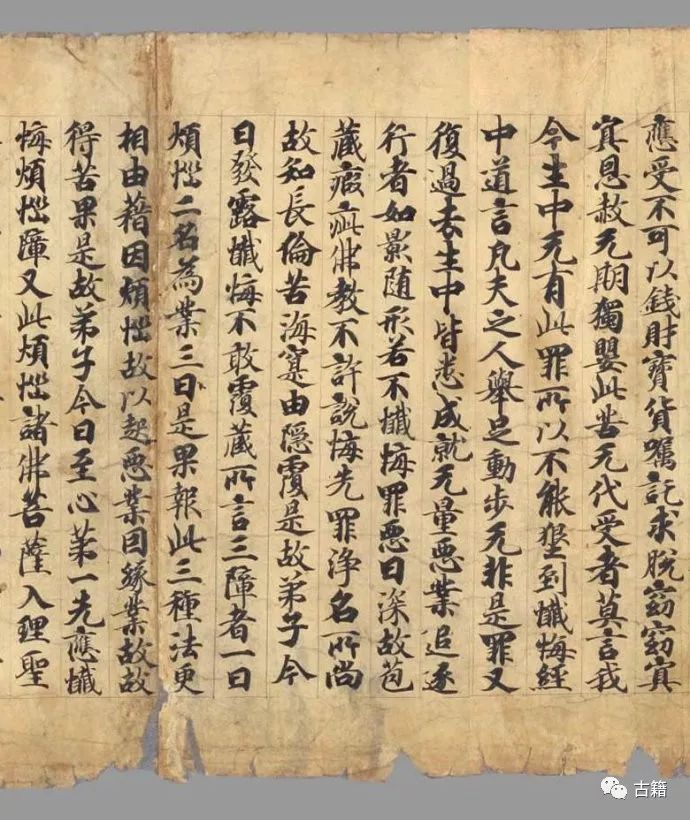 應受不可以錢財寶貨囑託求脫窈窈冥
冥恩赦无期獨嬰此苦无代受者莫言我
今生中无有此罪所以不能墾到懺悔經
中道言凡夫之人舉足動步无非是罪又
復過去生中皆悉成就无量惡業追逐
行者如影随形若不懺悔罪惡日深故苞
藏瑕疵佛教不許說悔先罪淨名所尚
故知長倫苦海寔由隱覆是故弟子今
日發露懺悔不敢覆藏所言三障者一曰
煩惱二名為業三曰是果報此三種法更
相由藉因煩惱故以起惡業因緣業故故
得苦果是故弟子今日至心第一先應懺
悔煩惱障又此煩惱諸佛菩薩入理聖
古籍